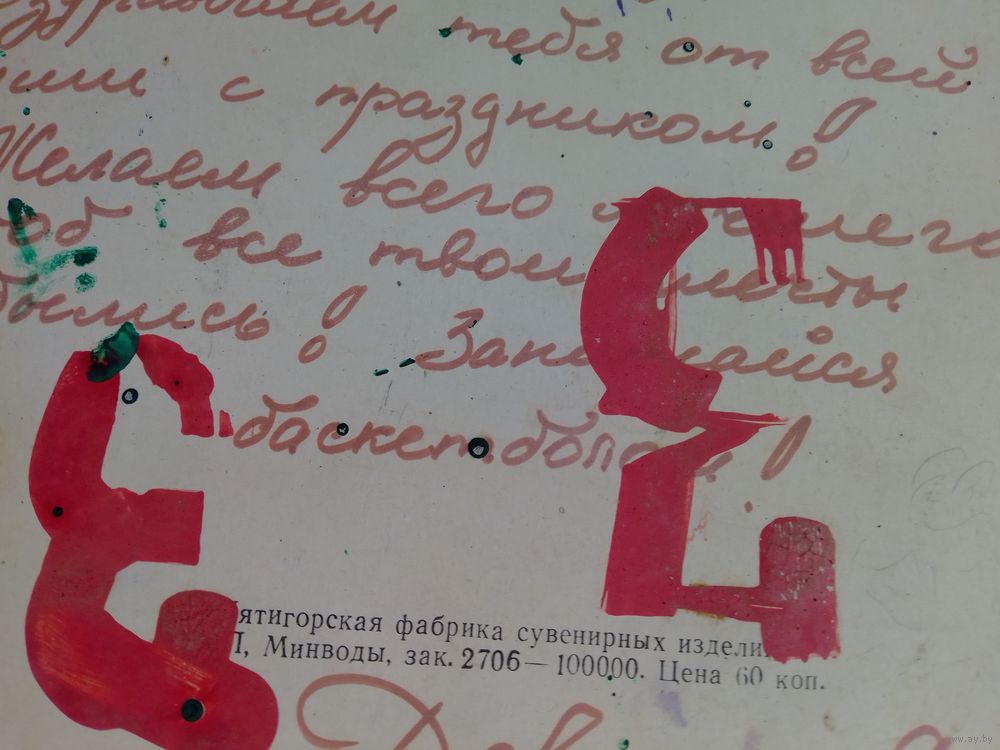 тебя от всей
с праздником!
Желаем всего
об все твои мечты
былись! Занимайся
баскетболом!
ятигорская фабрика сувенирных издели
П, Минводы, зак. 2706—100000. Цена 60 коп.
ww.ay.by